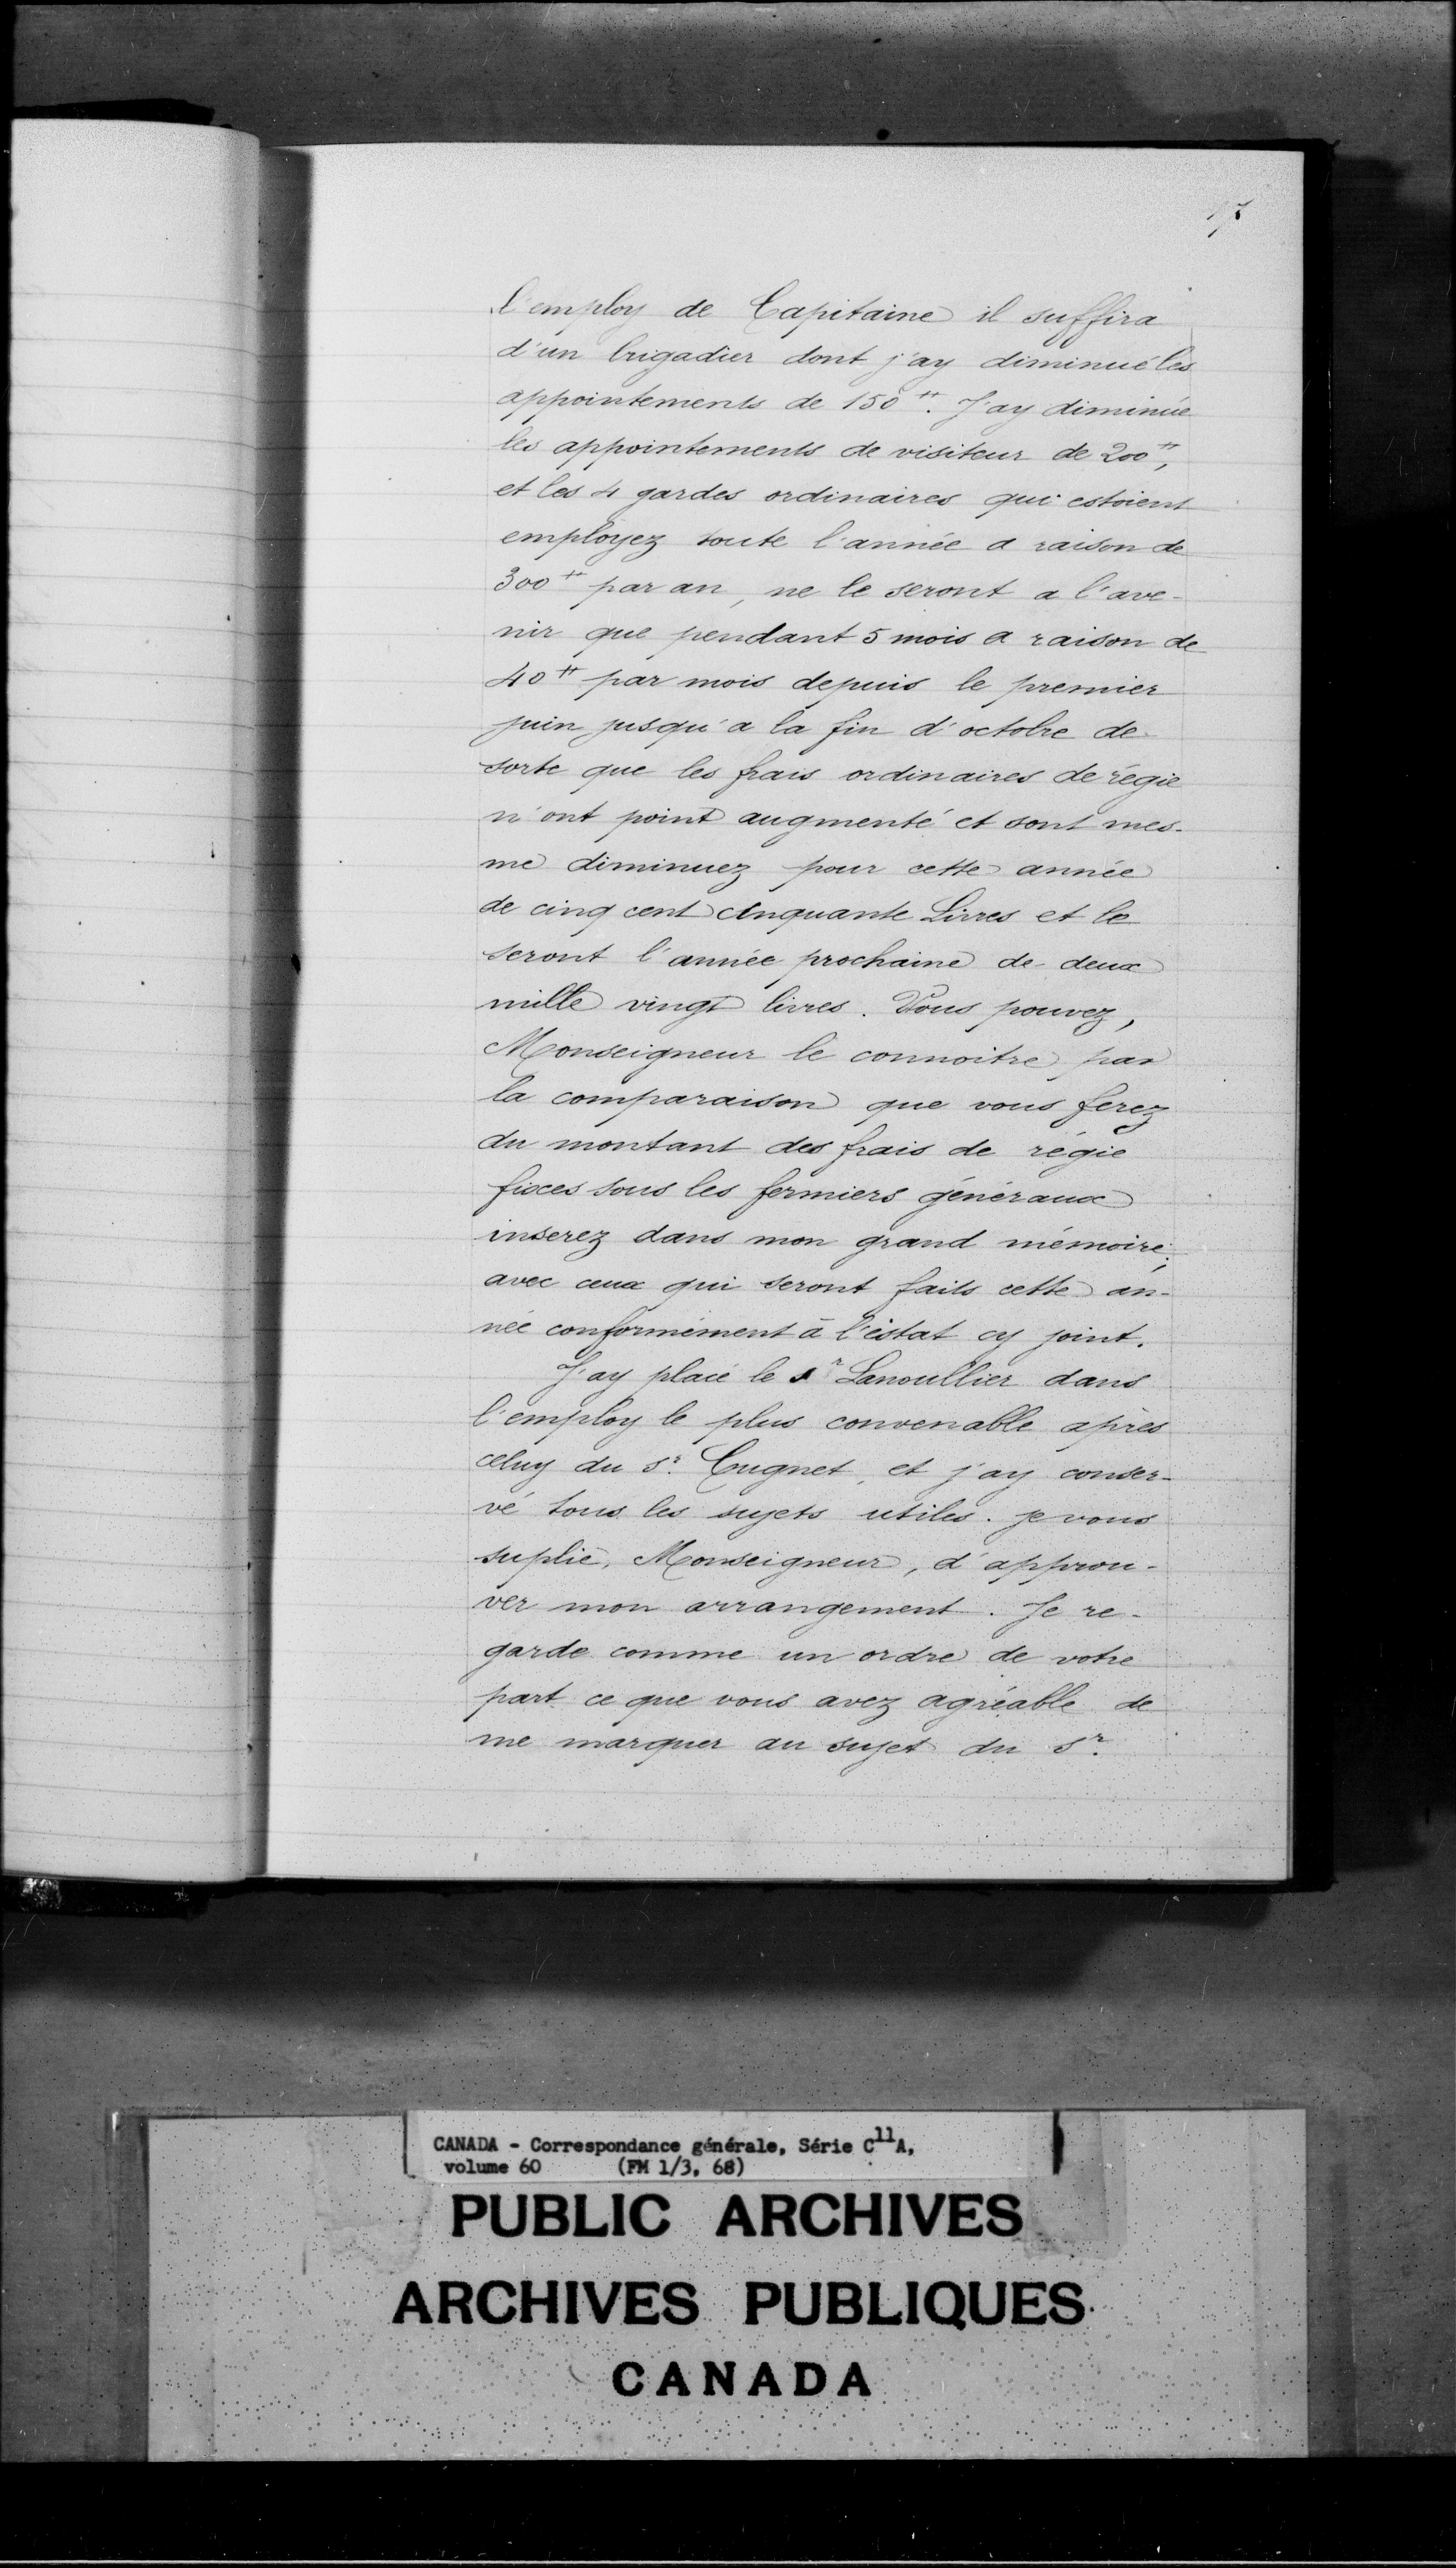 17
l'employ de Capitaine il suffira
d'un brigadier dont j'ay diminué les
appointements de 150 ᵗᵗ. J'ay diminué
les appointements de visiteur de 200 ᵗᵗ,
et les 4 gardes ordinaires qui estoient
employez toute l'année a raison de
300 ᵗᵗ par an, ne le seront a l'ave-
nir que pendant 5 mois a raison de
40 ᵗᵗ par mois depuis le premier
juin jusqu'a la fin d'octobre de
sorte que les frais ordinaires de régie
n'ont point augmenté et sont mes-
me diminuez pour cette année
de cinq cent cinquante Livres et le
seront l'année prochaine de deux
mille vingt livres. Vous pouvez,
Monseigneur le connoitre par
la comparaison que vous ferez
du montant des frais de régie
fixes sous les fermiers généraux
inserez dans mon grand mémoire;
avec ceux qui seront faits cette an-
née conformément à l'éstat cy joint.
J'ay placé le sʳ Lanoullier dans
l'employ le plus convenable après
celuy du Sʳ. Cugnet, et j'ay conser-
vé tous les sujets utiles. je vous
suplie, Monseigneur, d'approu-
ver mon arrangement. Je re-
garde comme un ordre de votre
part ce que vous avez agréable de
me marquer au sujet du Sʳ.
CANADA - Correspondance générale, Série C¹¹A,
volume 60 (FM 1/3, 68)
PUBLIC ARCHIVES
ARCHIVES PUBLIQUES
CANADA